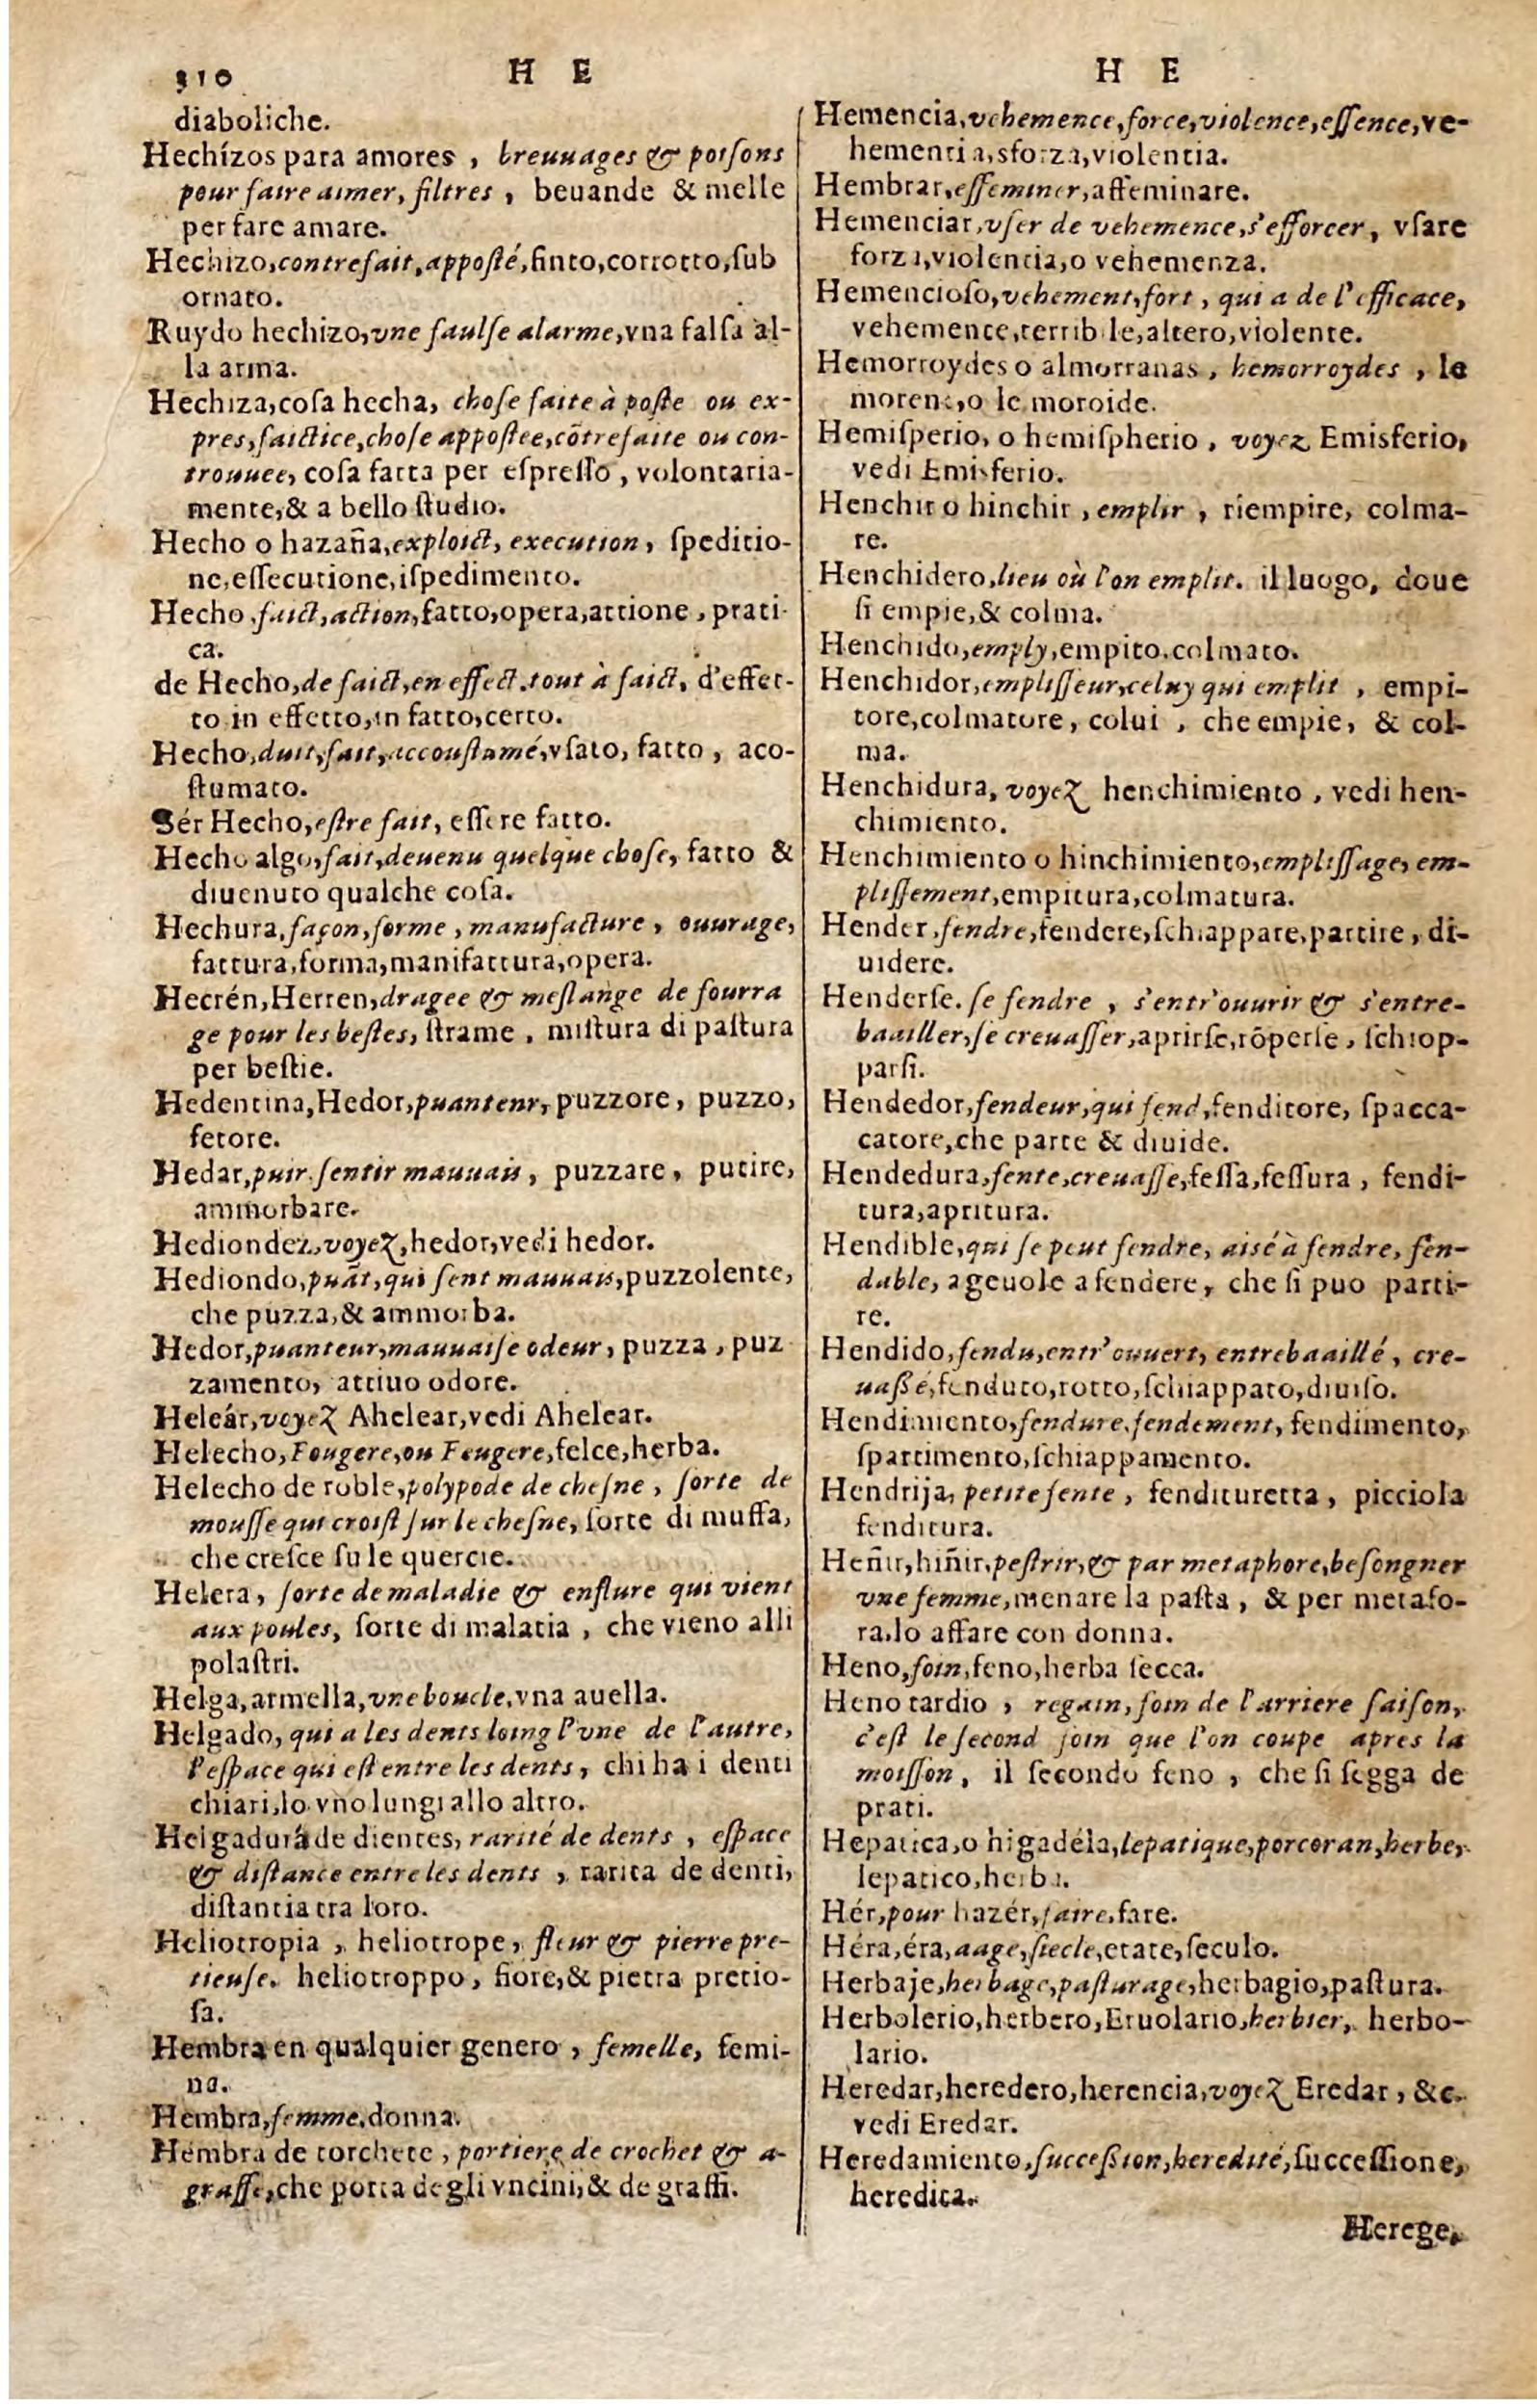 310 H E
diaboliche.
Hechízos para amores, breuuages & poisons
pour faire aimer, filtres, beuande & melle
per fare amare.
Hechizo, contrefait, apposté, finto, corrotto, sub
ornato.
Ruydo hechizo, vne faulse alarme, vna falsa al-
la arma.
Hechiza, cosa hecha, chose faite à poste ou ex-
pres, faictice, chose appostee, cõtrefaite ou con-
trouuee, cosa fatta per espresso, volontaria-
mente, & a bello studio.
Hecho o hazaña, exploict, execution, speditio-
ne, essecutione, ispedimento.
Hecho, faict, action, fatto, opera, attione, prati-
ca.
de Hecho, de faict, en effect. tout à faict, d'effet-
to in effetto, in fatto, certo.
Hecho, duit, fait, accoustumé, vsato, fatto, aco-
stumato.
Sér Hecho, estre fait, essere fatto.
Hecho algo, fait, deuenu quelque chose, fatto &
diuenuto qualche cosa.
Hechura, façon, forme, manufacture, ouurage,
fattura, forma, manifattura, opera.
Hecrén, Herren, dragee & meslange de fourra
ge pour les bestes, strame, mistura di pastura
per bestie.
Hedentina, Hedor, puantenr, puzzore, puzzo,
fetore.
Hedar, puir. sentir mauuais, puzzare, putire,
ammorbare.
Hediondez, voyez, hedor, vedi hedor.
Hediondo, puãt, qui sent mauuais, puzzolente,
che puzza, & ammorba.
Hedor, puanteur, mauuaise odeur, puzza, puz
zamento, attiuo odore.
Heleár, voyez Ahelear, vedi Ahelear.
Helecho, Fougere, ou Feugere, felce, herba.
Helecho de roble, polypode de chesne, sorte de
mousse qui croist sur le chesne, sorte di muffa,
che cresce su le quercie.
Helera, sorte de maladie & enflure qui vient
aux poules, sorte di malatia, che vieno alli
polastri.
Helga, armella, vne boucle, vna auella.
Helgado, qui a les dents loing l'vne de l'autre,
l'espace qui est entre les dents, chi ha i denti
chiari, lo vno lungi allo altro.
Helgadurá de dientes, rarité de dents, espace
& distance entre les dents, rarita de denti,
distantia tra loro.
Heliotropia, heliotrope, fleur & pierre pre-
tieuse. heliotroppo, fiore, & pietra pretio-
sa.
Hembra en qualquier genero, femelle, femi-
na.
Hembra, femme, donna.
Hembra de corchete, portiere de crochet & a-
graffe, che porta degli vncini, & de graffi.
H E
Hemencia, vehemence, force, violence, essence, ve-
hementia, sforza, violentia.
Hembrar, effeminer, affeminare.
Hemenciar, vser de vehemence, s'efforcer, vsare
forza, violentia, o vehemenza.
Hemencioso, vehement, fort, qui a de l'efficace,
vehemente, terribile, altero, violente.
Hemorroydes o almorranas, hemorroydes, le
morene, o le moroide.
Hemisperio, o hemispherio, voyez Emisferio,
vedi Emisferio.
Henchir o hinchir, emplir, riempire, colma-
re.
Henchidero, lieu où l'on emplit. il luogo, doue
si empie, & colma.
Henchido, emply, empito. colmato.
Henchidor, emplisseur, celuy qui emplit, empi-
tore, colmatore, colui, che empie, & col-
ma.
Henchidura, voyez henchimiento, vedi hen-
chimiento.
Henchimiento o hinchimiento, emplissage, em-
plissement, empitura, colmatura.
Hender, fendre, fendere, schiappare, partire, di-
uidere.
Henderse. se fendre, s'entr'ouurir & s'entre-
baailler, se creuasser, aprirse, rõperse, schiop-
parsi.
Hendedor, fendeur, qui fend, fenditore, spacca-
catore, che parte & diuide.
Hendedura, fente, creuasse, fessa, fessura, fendi-
tura, apritura.
Hendible, qui se peut fendre, aisé à fendre, fen-
dable, ageuole a fendere, che si puo parti-
re.
Hendido, fendu, entr'ouuert, entrebaaillé, cre-
uaßé, fenduto, rotto, schiappato, diuiso.
Hendimiento, fendure. fendement, fendimento,
spartimento, schiappamento.
Hendrija, petite fente, fendituretta, picciola
fenditura.
Heñir, hiñir, pestrir, & par metaphore, besongner
vne femme, menare la pasta, & per metafo-
ra. lo affare con donna.
Heno, foin, feno, herba secca.
Heno tardio, regain, foin de l'arriere saison,
c'est le second foin que l'on coupe apres la
moisson, il secondo feno, che si segga de
prati.
Hepatica, o higadéla, lepatique, porcoran, herbe,
lepatico, herba.
Hér, pour hazér, faire, fare.
Héra, éra, aage, siecle, etate, seculo.
Herbaje, herbage, pasturage, herbagio, pastura.
Herbolerio, herbero, Eruolario, herbier, herbo-
lario.
Heredar, heredero, herencia, voyez Eredar, &c.
vedi Eredar.
Heredamiento, succeßion, heredité, successione,
heredita.
Herege,